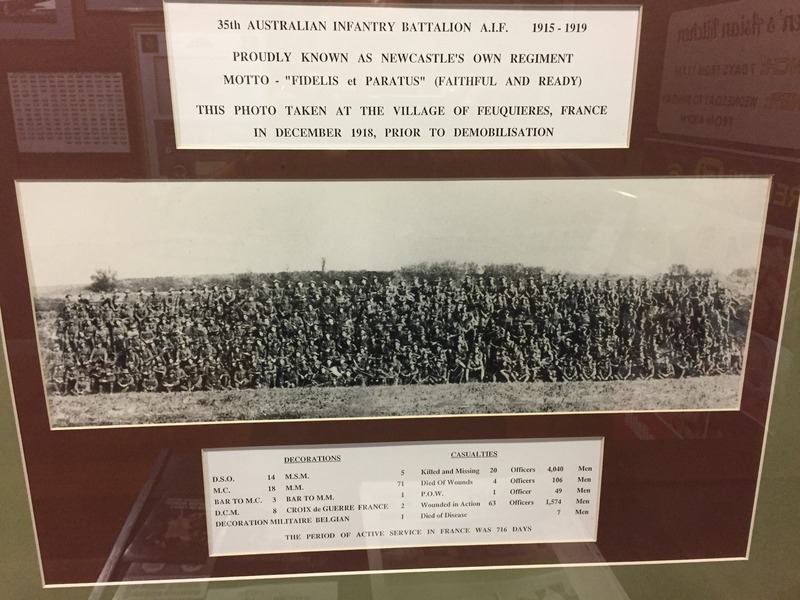 35th AUSTRALIAN INFANTRY BATTALION A.I.F. 1915 - 1919
PROUDLY KNOWN AS NEWCASTLE'S OWN REGIMENT
MOTTO - "FIDELIS et PARATUS" (FAITHFUL AND READY)
THIS PHOTO TAKEN AT THE VILLAGE OF FEUQUIERES, FRANCE
IN DECEMBER 1918, PRIOR TO DEMOBILISATION
DECORATIONS
D.S.O. 14 M.S.M. 5
M.C. 18 M.M. 71
BAR TO M.C. 3 BAR TO M.M. 1
D.C.M. 8 CROIX de GUERRE FRANCE 2
DECORATION MILITAIRE BELGIAN 1
CASUALTIES
Killed and Missing 20 Officers 4,040 Men
Died Of Wounds 4 Officers 106 Men
P.O.W. 1 Officer 49 Men
Wounded in Action 63 Officers 1,574 Men
Died of Disease 7 Men
THE PERIOD OF ACTIVE SERVICE IN FRANCE WAS 716 DAYS